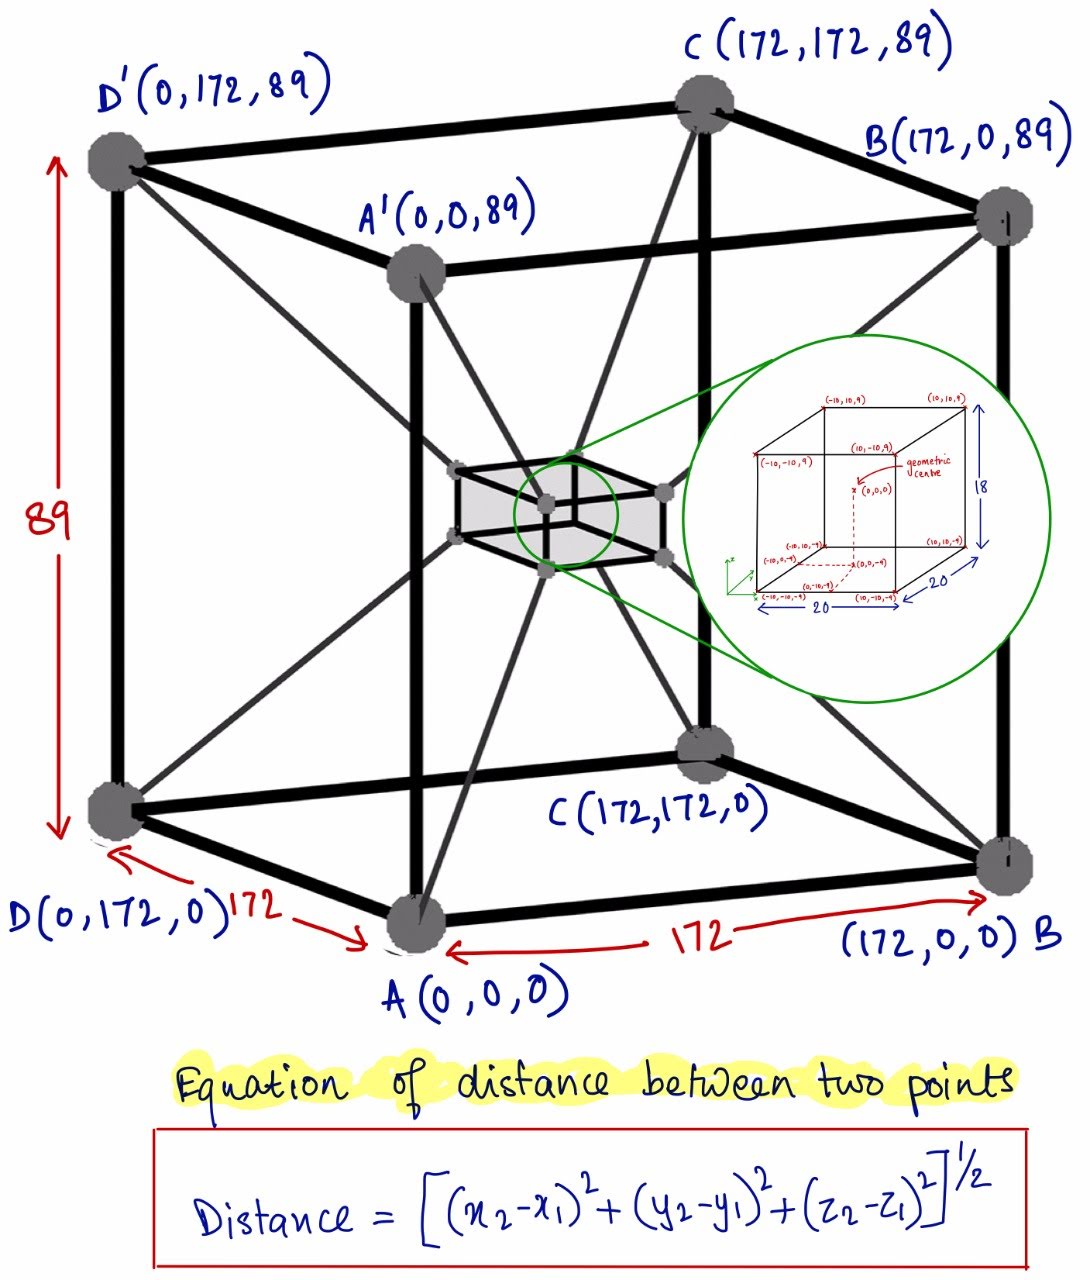 C (172,172,89)
D'(0,172,89)
B(172,0,89)
A'(0,0,89)
(-10,10,9)
(10,10,9)
(10,-10,9)
(-10,-10,9)
geometric
centre
(0,0,0)
18
89
(-10,10,-9)
(10,10,-9)
(-10,0,-9)
(0,0,-9)
z
y
x
(0,-10,-9)
(-10,-10,-9)
(10,-10,-9)
20
20
C(172,172,0)
D(0,172,0)
172
172
(172,0,0) B
A(0,0,0)
Equation of distance between two points
Distance = [(x₂-x₁)²+(y₂-y₁)²+(z₂-z₁)²]^1/2